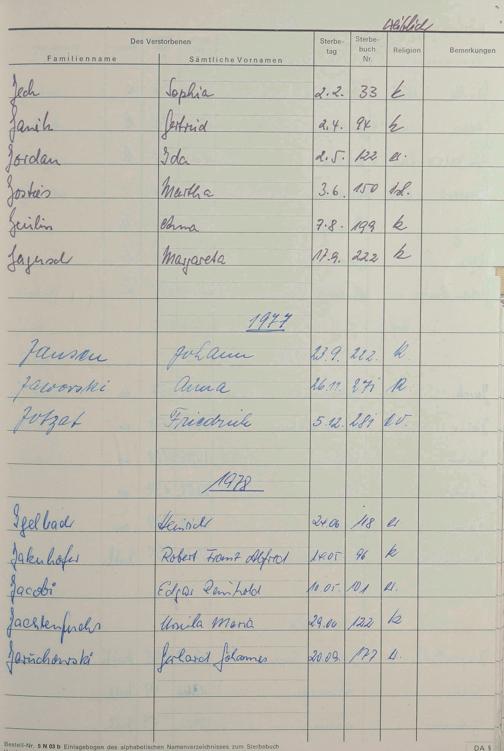 weiblich
Des Verstorbenen Sterbe- Sterbe- Religion Bemerkungen
Familienname Sämtliche Vornamen tag buch Nr.
Jech Sophia 2.2. 33 k
Janik Gertrud 2.4. 94 k
Jordan Ida 2.5. 122 ev.
Martha 3.6. 150
Anna 7.8. 199 k
Margareta 17.9. 222 k
1977
Jansen Johann 23.9. 222. k
Jaworski Anna 26.11. 271 k
Jotzat Friedrich 5.12. 281 ev.
1978
Heinrich 118 ev
Jakenhofer Robert Franz Alfred 14.05 96 k
Jacobi Edgar Reinhold 10.05. 101 ev.
Jachtenfuchs Ursula Maria 122 k
Jaruchowski Gerhard Johannes 20.09. 177 ev.
Bestell-Nr. S N 03 b Einlagebogen des alphabetischen Namenverzeichnisses zum Sterbebuch DA